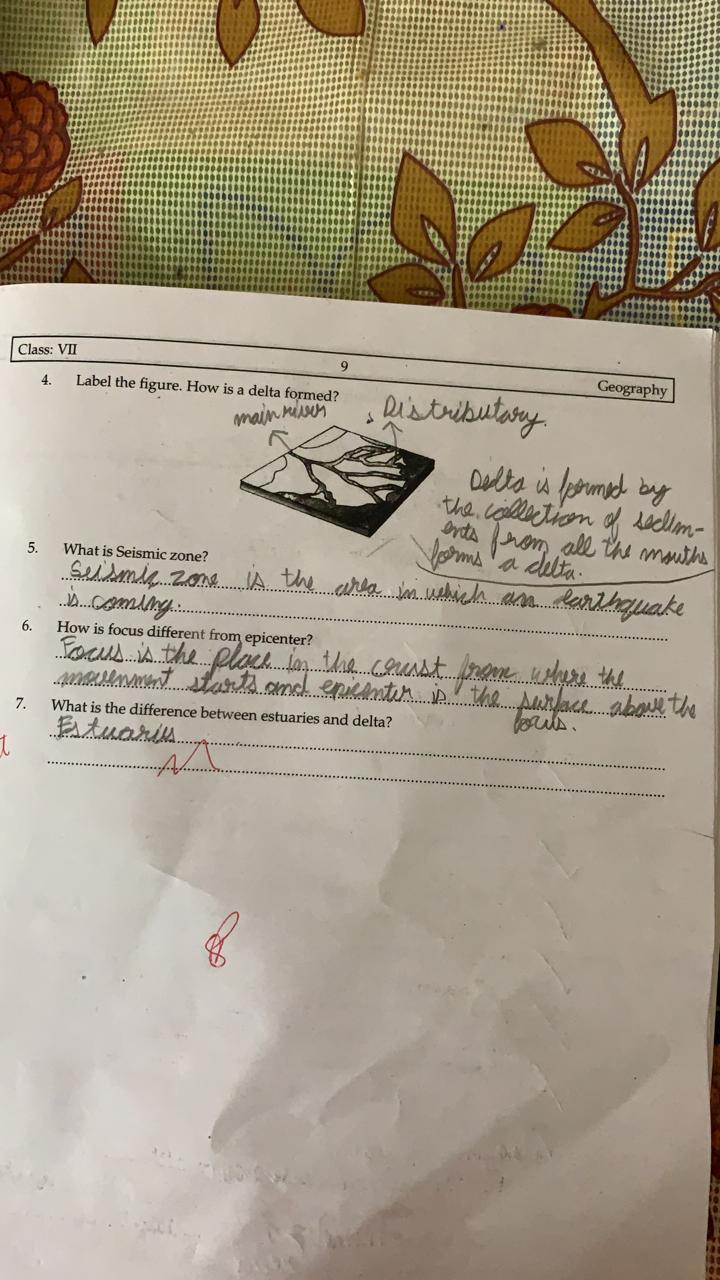 Class: VII
9
Geography
4. Label the figure. How is a delta formed?
main river
Distributary.
Delta is formed by
the collection of sedim-
ents from all the mouths
forms a delta.
5. What is Seismic zone?
Seismic zone is the area in which an earthquake
is coming.
6. How is focus different from epicenter?
Focus is the place in the crust from where the
movenment starts and epicenter is the surface above the
focus.
7. What is the difference between estuaries and delta?
Estuaries